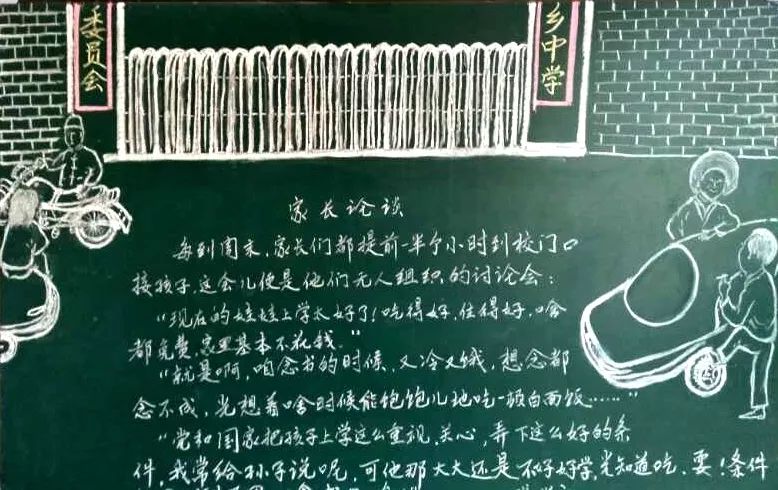 委员会
乡中学
家长论谈
每到周末，家长们都提前一半个小时到校门口
接孩子，这会儿便是他们无人组织的讨论会：
“现在的娃娃上学太好了！吃得好，住得好，啥
都免费，家里基本不花钱。”
“就是啊，咱念书的时候，又冷又饿，想念都
念不成，光想着啥时候能饱饱儿地吃一顿白面饭……”
“党和国家把孩子上学这么重视，关心，弄下这么好的条
件，我常给孙子说呢，可他那大大还是不好好学，光知道吃、耍！条件